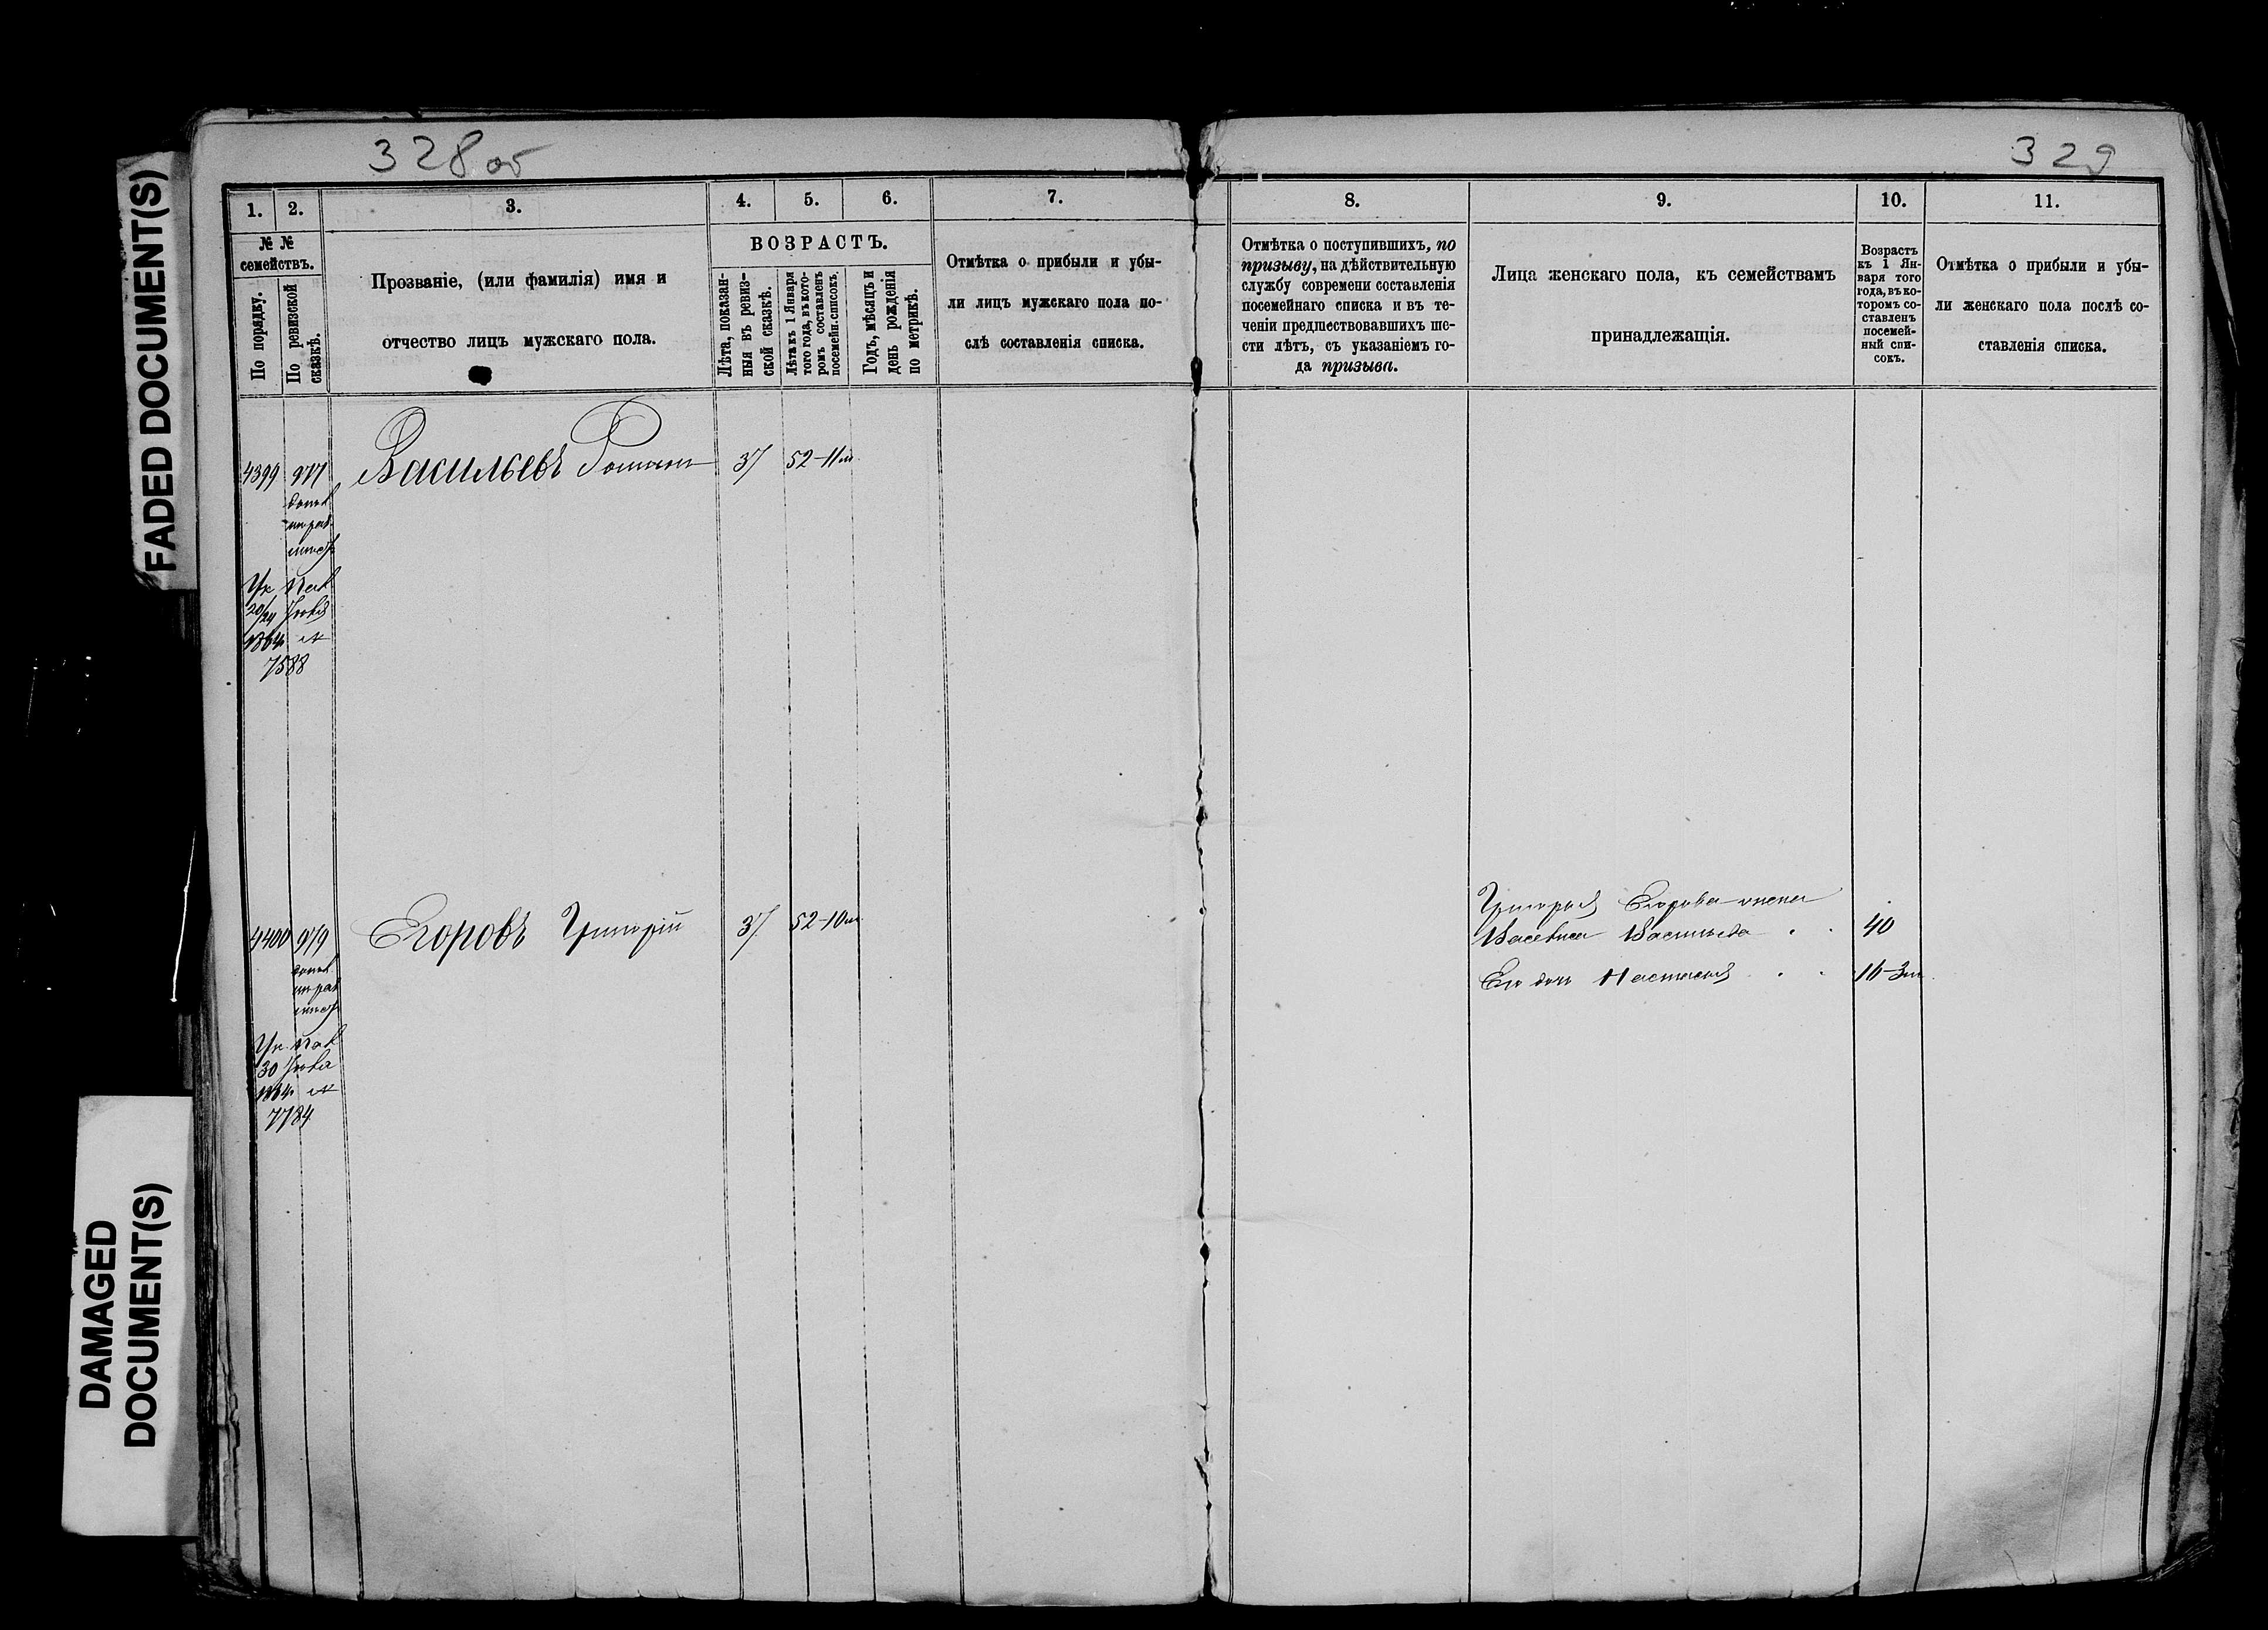 328 об
329
FADED DOCUMENT(S)
DAMAGED
DOCUMENT(S)
1.
2.
3.
4.
5.
6.
7.
№ №
семействъ.
По порядку.
По ревизской
сказкѣ.
Прозваніе, (или фамилія) имя и
отчество лицъ мужскаго пола.
ВОЗРАСТЪ.
Лѣта, показан-
ныя въ ревиз-
ской сказкѣ.
Лѣта къ 1 Января
того года, въ кото-
ромъ составленъ
посемейн. списокъ.
Годъ, мѣсяцъ и
день рожденія
по метрикѣ.
Отмѣтка о прибыли и убы-
ли лицъ мужскаго пола по-
слѣ составленія списка.
8.
9.
10.
11.
Отмѣтка о поступившихъ, по
призыву, на дѣйствительную
службу современи составленія
посемейнаго списка и въ те-
ченіи предшествовавшихъ ше-
сти лѣтъ, съ указаніемъ го-
да призыва.
Лица женскаго пола, къ семействамъ
принадлежащія.
Возрастъ
къ 1 Ян-
варя того
года, въ ко-
торомъ со-
ставленъ
посемей-
ный спи-
сокъ.
Отмѣтка о прибыли и убы-
ли женскаго пола послѣ со-
ставленія списка.
4399 977 Васильевъ Романъ 37 52-11м
7588
4400 979 Егоровъ Григорій 37 52-10м
7784
Григорья Егорова жена
Васильева 40
Его дочь Настасья 16-3м